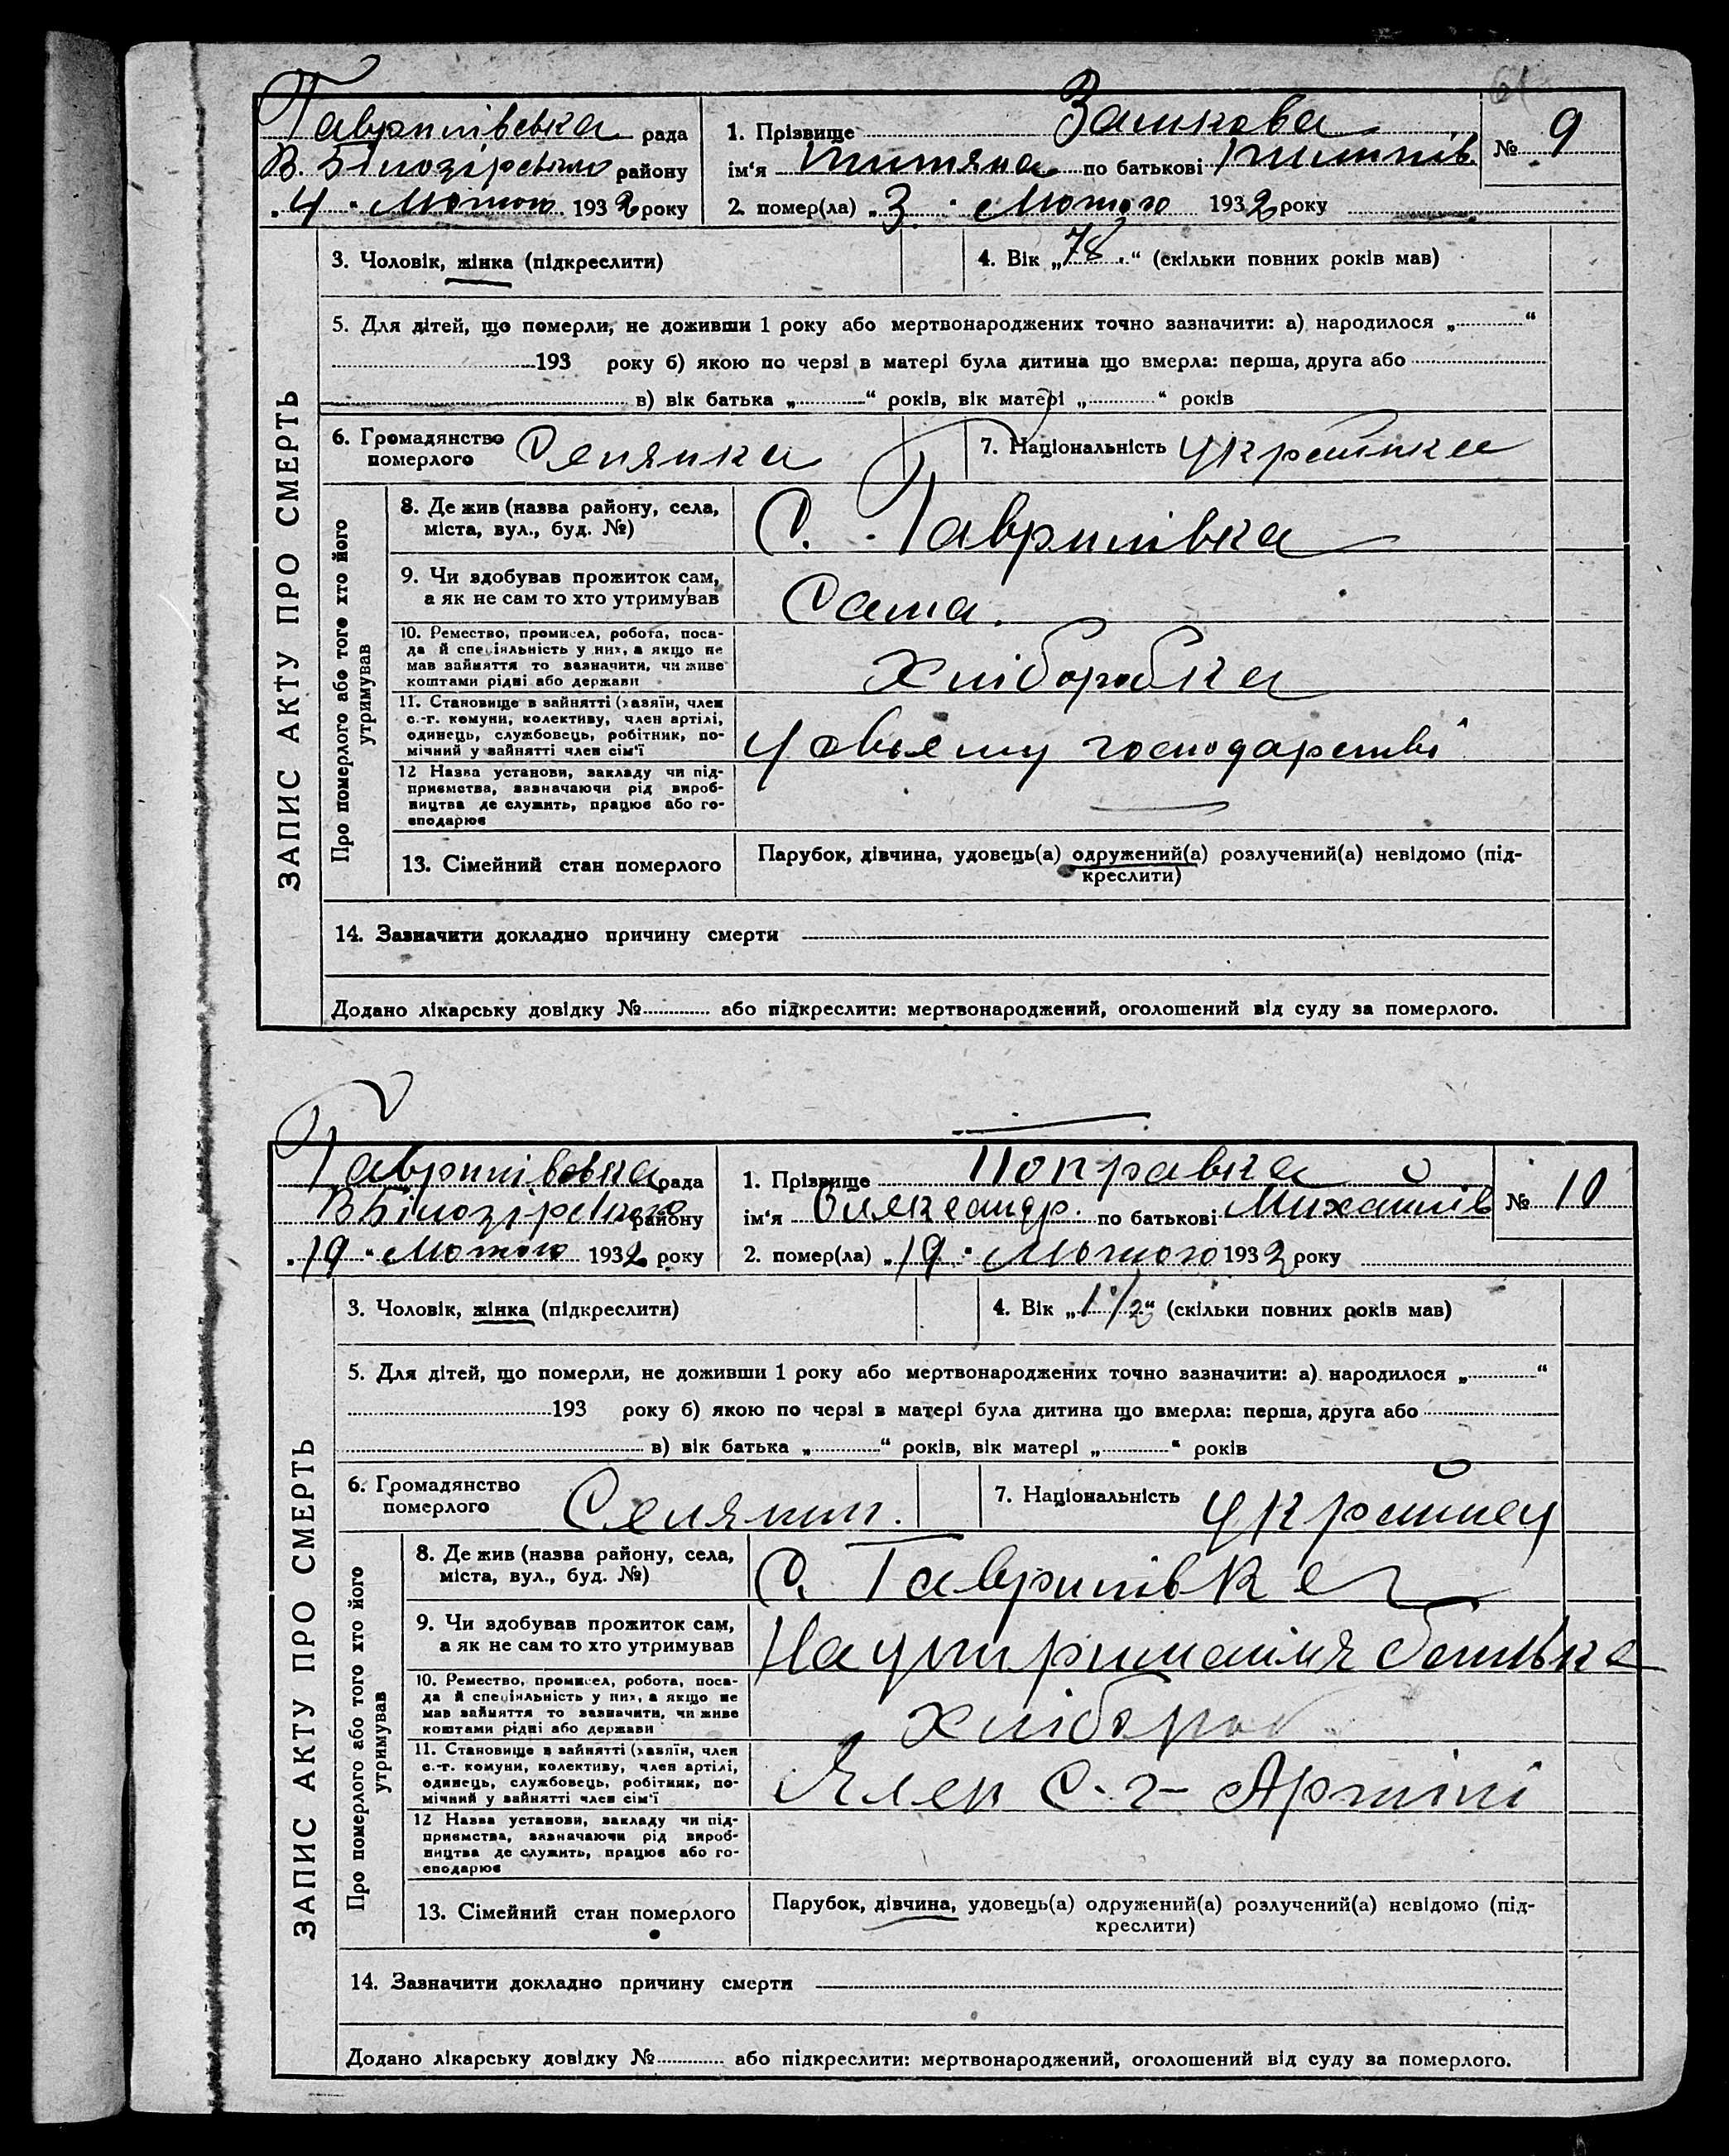 61
Гаврилівська рада
В. Білозірського району
„4“ Лютого 1932 року
1. Прізвище Зашкова
ім'я Титяна по батькові
№ 9
2. помер(ла) „3“ Лютого 1932 року
3. Чоловік, жінка (підкреслити)
4. Вік „78“ (скільки повних років мав)
5. Для дітей, що померли, не доживши 1 року або мертвонароджених точно зазначити: а) народилося „............“
193 року б) якою по черзі в матері була дитина що вмерла: перша, друга або
в) вік батька „............“ років, вік матері „............“ років
6. Громадянство
померлого Селянка
7. Національність Українка
ЗАПИС АКТУ ПРО СМЕРТЬ
Про померлого або того хто його
утримував
8. Де жив (назва району, села,
міста, вул., буд. №)
С. Гаврилівка
9. Чи здобував прожиток сам,
а як не сам то хто утримував
Сама.
10. Ремество, промисел, робота, поса-
да й спеціяльність у них, а якщо не
мав зайняття то зазначити, чи живе
коштами рідні або держави
Хліборобка
11. Становище в зайнятті (хазяїн, член
с.-г. комуни, колективу, член артілі,
одинець, службовець, робітник, по-
мічний у зайнятті член сім'ї
У свьему господарстві
12 Назва установи, закладу чи під-
приємства, зазначаючи рід вироб-
ництва де служить, працює або го-
сподарює
13. Сімейний стан померлого
Парубок, дівчина, удовець(а) одружений(а) розлучений(а) невідомо (під-
креслити)
14. Зазначити докладно причину смерти
Додано лікарську довідку №............ або підкреслити: мертвонароджений, оголошений від суду за померлого.
Гаврилівська рада
В Білозірського району
„19“ Лютого 1932 року
1. Прізвище Поправка
ім'я Олександр. по батькові Михайлів
№ 10
2. помер(ла) „19“ Лютого 1932 року
3. Чоловік, жінка (підкреслити)
4. Вік „1 1/2“ (скільки повних років мав)
5. Для дітей, що померли, не доживши 1 року або мертвонароджених точно зазначити: а) народилося „............“
193 року б) якою по черзі в матері була дитина що вмерла: перша, друга або
в) вік батька „............“ років, вік матері „............“ років
6. Громадянство
померлого Селянин.
7. Національність Українец
ЗАПИС АКТУ ПРО СМЕРТЬ
Про померлого або того хто його
утримував
8. Де жив (назва району, села,
міста, вул., буд. №)
С. Гаврилівка
9. Чи здобував прожиток сам,
а як не сам то хто утримував
На утримания батька
10. Ремество, промисел, робота, поса-
да й спеціяльність у них, а якщо не
мав зайняття то зазначити, чи живе
коштами рідні або держави
Хлібороб
11. Становище в зайнятті (хазяїн, член
с.-г. комуни, колективу, член артілі,
одинець, службовець, робітник, по-
мічний у зайнятті член сім'ї
Член С-г- Артілі
12 Назва установи, закладу чи під-
приємства, зазначаючи рід вироб-
ництва де служить, працює або го-
сподарює
13. Сімейний стан померлого
Парубок, дівчина, удовець(а) одружений(а) розлучений(а) невідомо (під-
креслити)
14. Зазначити докладно причину смерти
Додано лікарську довідку №............ або підкреслити: мертвонароджений, оголошений від суду за померлого.